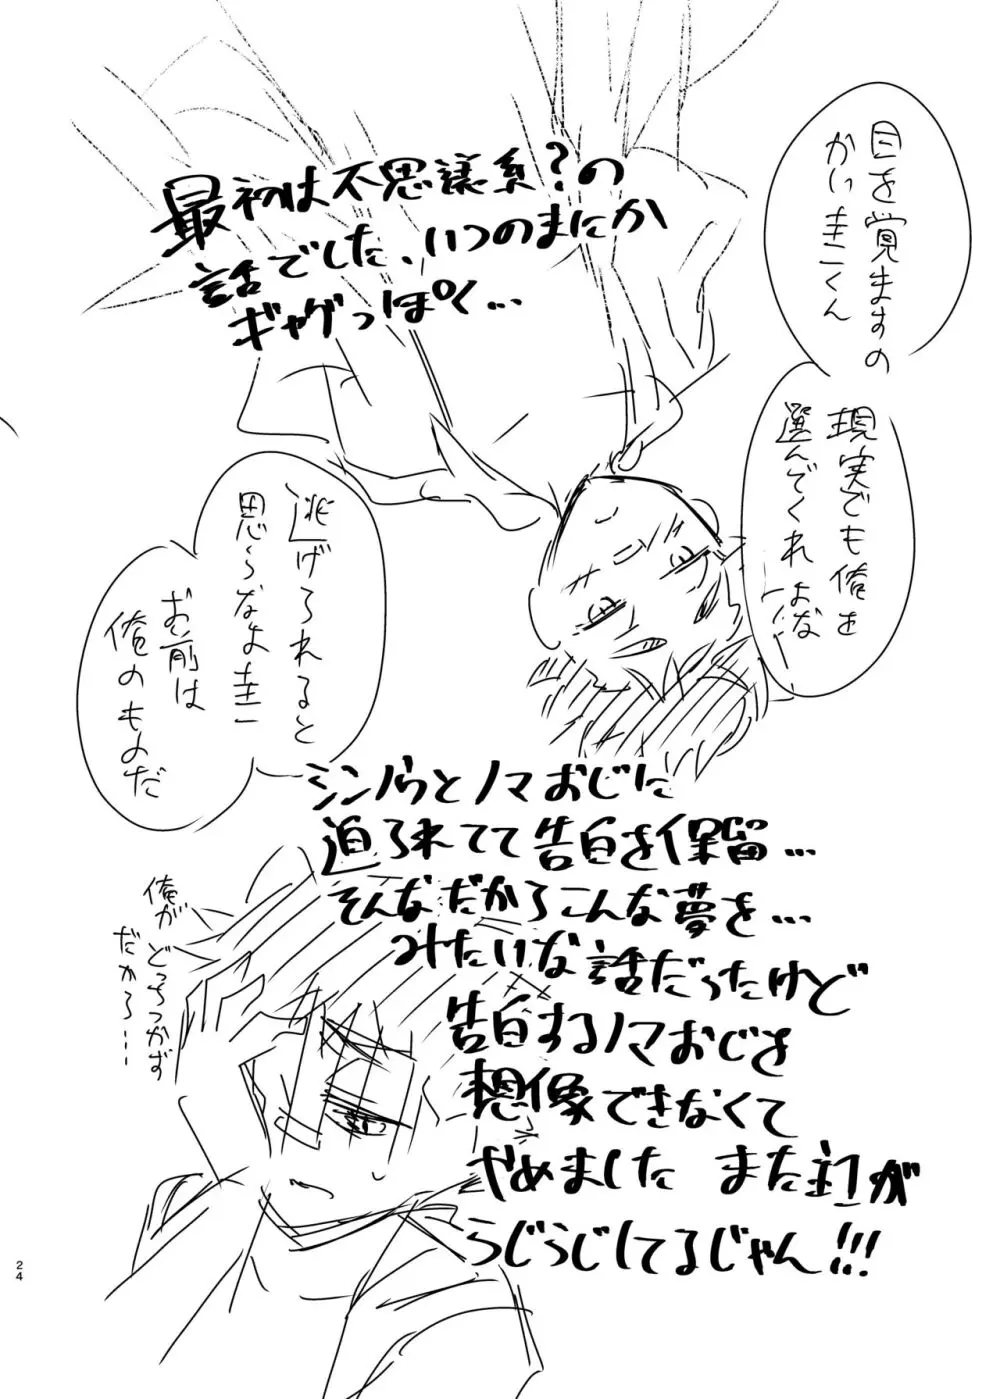 目を覚ますの
かい圭くん
現実でも俺を
選んでくれよな
最初は不思議系?の
話でした、いつのまにか
ギャグっぽく…
逃げられると
思うなよ圭
お前は
俺のものだ
シンノウとノマおじに
迫られてて告白を保留…
そんなだからこんな夢を…
みたいな話だったけど
告白するノマおじを
想像できなくて
やめました また主が
うじうじしてるじゃん!!!
俺が
どっちつかず
だから…
24